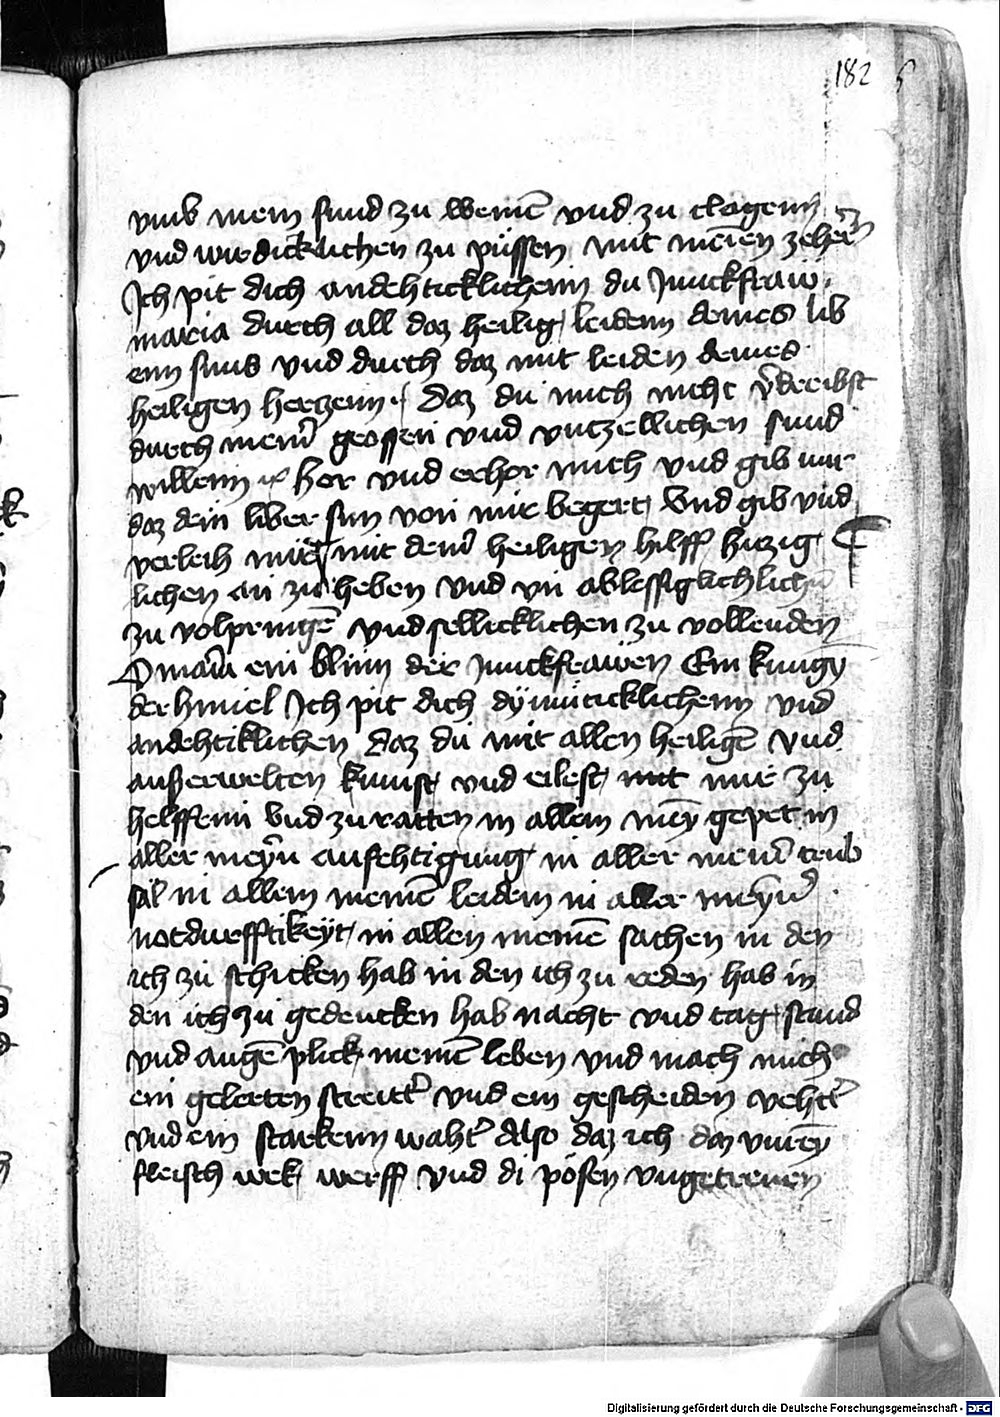 182
vmb mein sund zu weinē vnd zu clagenn
vnd wirdicklichen zu püssen mit meinen zehern
Ich pit dich andehticklichenn du Junckfraw
maria durch all daz heilig leidenn deines lib
enn suns vnd durch daz mit leiden deines
heiligen hertzenn daz du mich nicht v̄dreibst
durch mein̄ grossen vnd vntzellichen sund
willenn hor vnd erhor mich vnd gib mir
daz dein liber sun von mir begert vnd gib vnd
verleih mir mit dein̄ heiligen hilff hitzig
lichen an zu heben vnd vn ablessiglichlichn̄
zu volpringē vnd sellicklichen zu vollenden
O maria ein blum der Junckfrawen Ein kungȳ
der himel Ich pit dich dymüticklichenn vnd
andehtiklichen daz du mit allen heiligē vnd
außerwelten kumst vnd eilest mit mir zu
helffenn vnd zu ratten in allem meȳ gepet in
aller meyn̄ anfehtigung in aller mein̄ trub
sal in allem meinē leidem in aller meyn̄
notdurfftikeyt in allen meinē sachen in den
ich zu schicken hab in den ich zu reden hab in
den ich zu gedencken hab nacht vnd tag stund
vnd augē plick meinē leben vnd mach mich
ein gelerten streitt̄ vnd ein gescheiden veht̄
vnd ein starkenn waht̄ Also daz ich daz vnreȳ
fleisch wek werff vnd di pösen vngetrewen
Digitalisierung gefördert durch die Deutsche Forschungsgemeinschaft - DFG